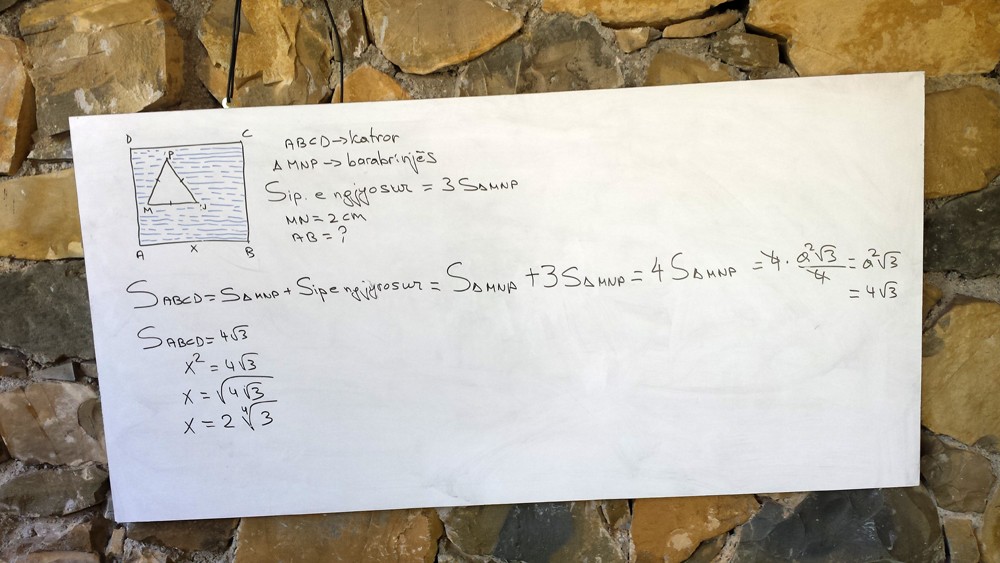 D C
P
M N
A x B
ABCD→katror
△MNP→barabrinjës
Sip. e ngjyosur = 3S△MNP
MN=2cm
AB=?
SABCD=S△MNP+Sip e ngjyrosur=S△MNP+3S△MNP=4S△MNP=4·a²√3/4=a²√3
=4√3
SABCD=4√3
x²=4√3
x=√4√3
x=2∜3